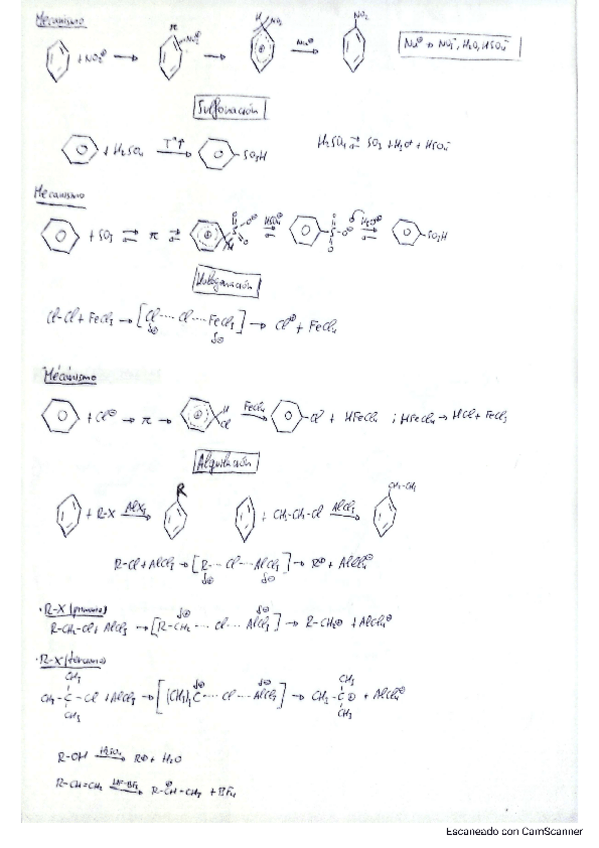 Mecanismo
+ NO2⊕ → π NO2⊕ → H NO2 Nu⊖ → NO2
Nu⊖ → NO3⁻, H2O, HSO4⁻
Sulfonación
+ H2SO4 T↑ → SO3H
H2SO4 ⇌ SO3 + H3O⁺ + HSO4⁻
Mecanismo
+ SO3 ⇌ π ⇌ HSO4⊖ ⇌ H3O⊕ ⇌ SO3H
Halogenación
Cl-Cl + FeCl3 → [Cl ···· Cl ··· FeCl3] → Cl⊕ + FeCl4
δ⊕ δ⊖
Mecanismo
+ Cl⊕ → π → H Cl FeCl4 → Cl + HFeCl4 ; HFeCl4 → HCl + FeCl3
Alquilación
+ R-X AlX3 → R
+ CH3-CH2-Cl AlCl3 → CH2-CH3
R-Cl + AlCl3 → [R ··· Cl ··· AlCl3] → R⊕ + AlCl4⊖
δ⊕ δ⊖
· R-X (primario)
R-CH2-Cl + AlCl3 → [R-CH2 ··· Cl ··· AlCl3] → R-CH2⊕ + AlCl4⊖
· R-X (terciario)
CH3
CH3 - C - Cl + AlCl3 → [(CH3)3C ···· Cl ··· AlCl3] → CH3 - C⊕ + AlCl4⊖
CH3
R-OH H2SO4 → R⊕ + H2O
R-CH=CH2 HF-BF3 → R-CH-CH3 + BF4
Escaneado con CamScanner